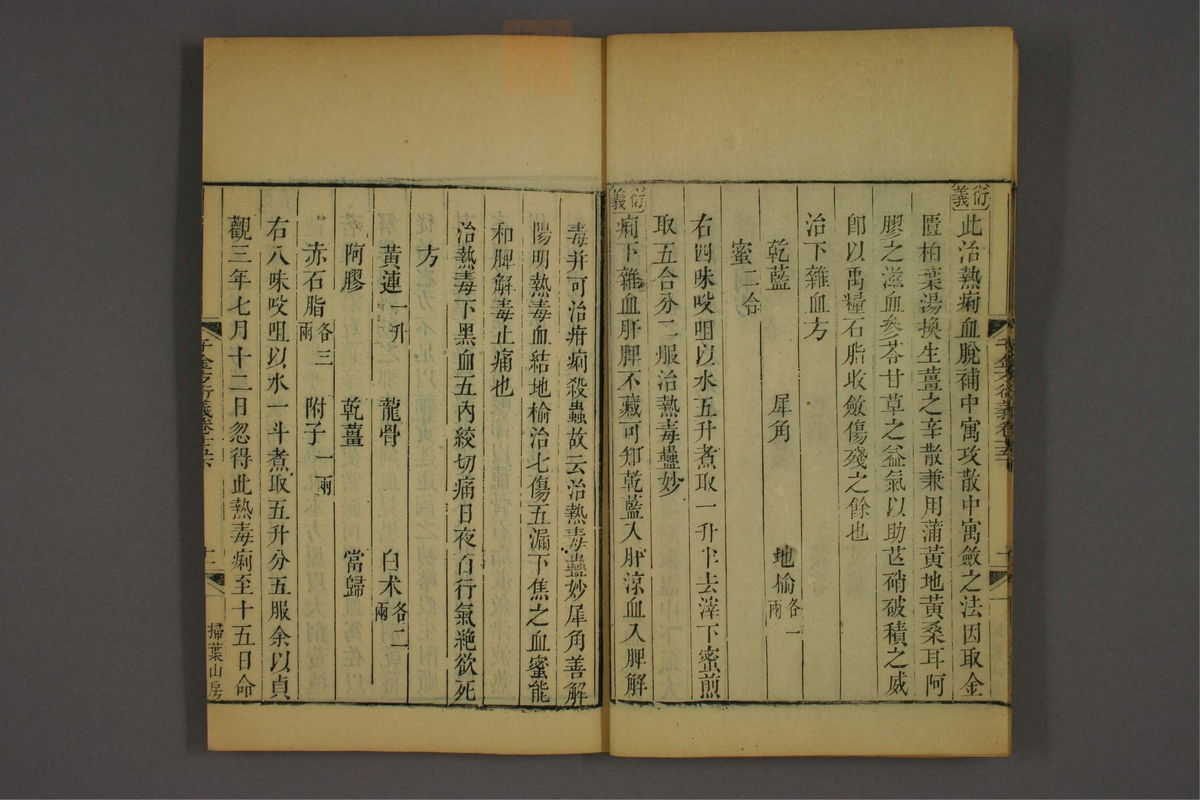 衍義此治熱痢血脫補中寓攻散中寓斂之法因取金
匱柏葉湯換生薑之辛散兼用蒲黃地黃桑耳阿
膠之滋血參苓甘草之益氣以助芒硝破積之威
卽以禹糧石脂收斂傷殘之餘也
治下雜血方
乾藍 犀角 地榆各一兩
蜜二合
右四味㕮咀以水五升煮取一升半去滓下蜜煎
取五合分二服治熱毒蠱妙
衍義痢下雜血肝脾不藏可知乾藍入肝涼血入脾解
毒并可治疳痢殺蟲故云治熱毒蠱妙犀角善解
陽明熱毒血結地榆治七傷五漏下焦之血蜜能
和脾解毒止痛也
治熱毒下黑血五內絞切痛日夜百行氣絶欲死
方
黃連一升 龍骨 白术各二兩
阿膠 乾薑 當歸
赤石脂各三兩 附子一兩
右八味㕮咀以水一斗煮取五升分五服余以貞
觀三年七月十二日忽得此熱毒痢至十五日命
掃葉山房